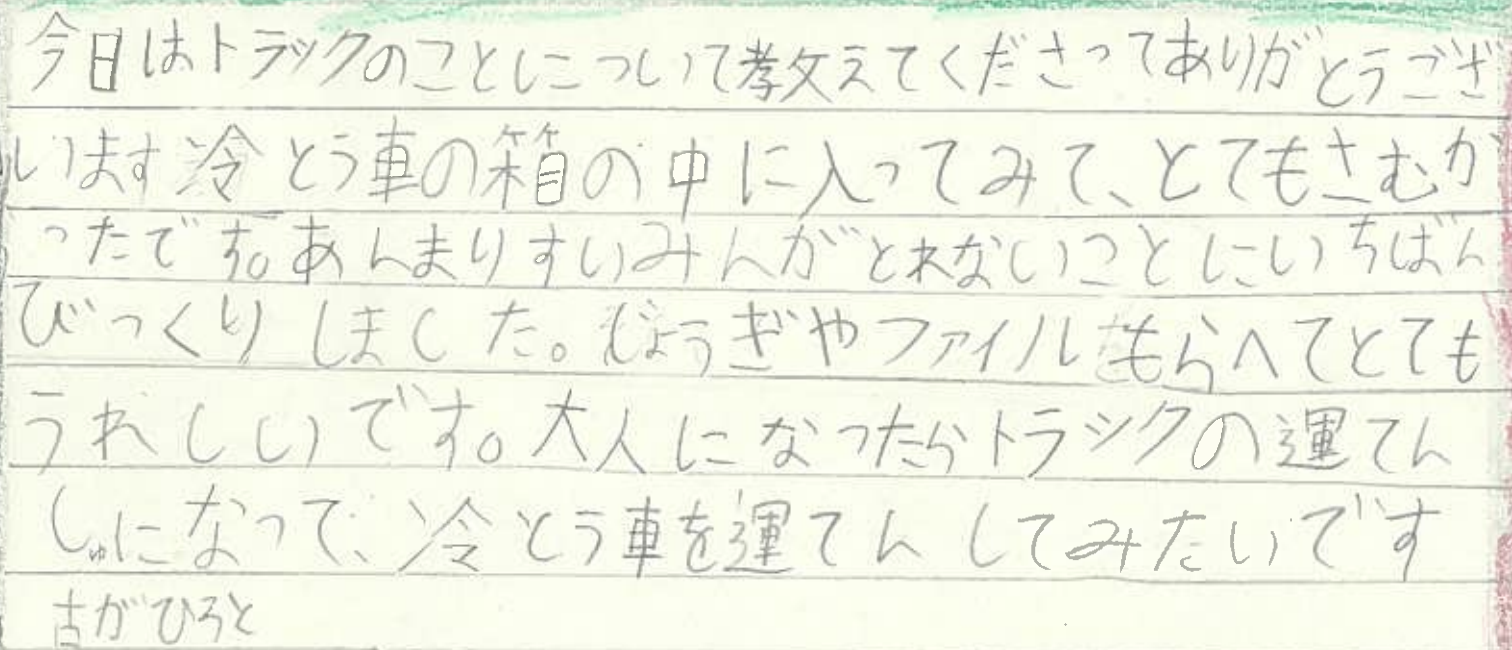 今日はトラックのことについて教えてくださってありがとうござ
います冷とう車の箱の中に入ってみて、とてもさむか
ったです。あんまりすいみんがとれないことにいちばん
びっくりしました。じょうぎやファイルもらへてとても
うれしいです。大人になったらトラックの運てん
しゅになって、冷とう車を運てんしてみたいです
古がひろと